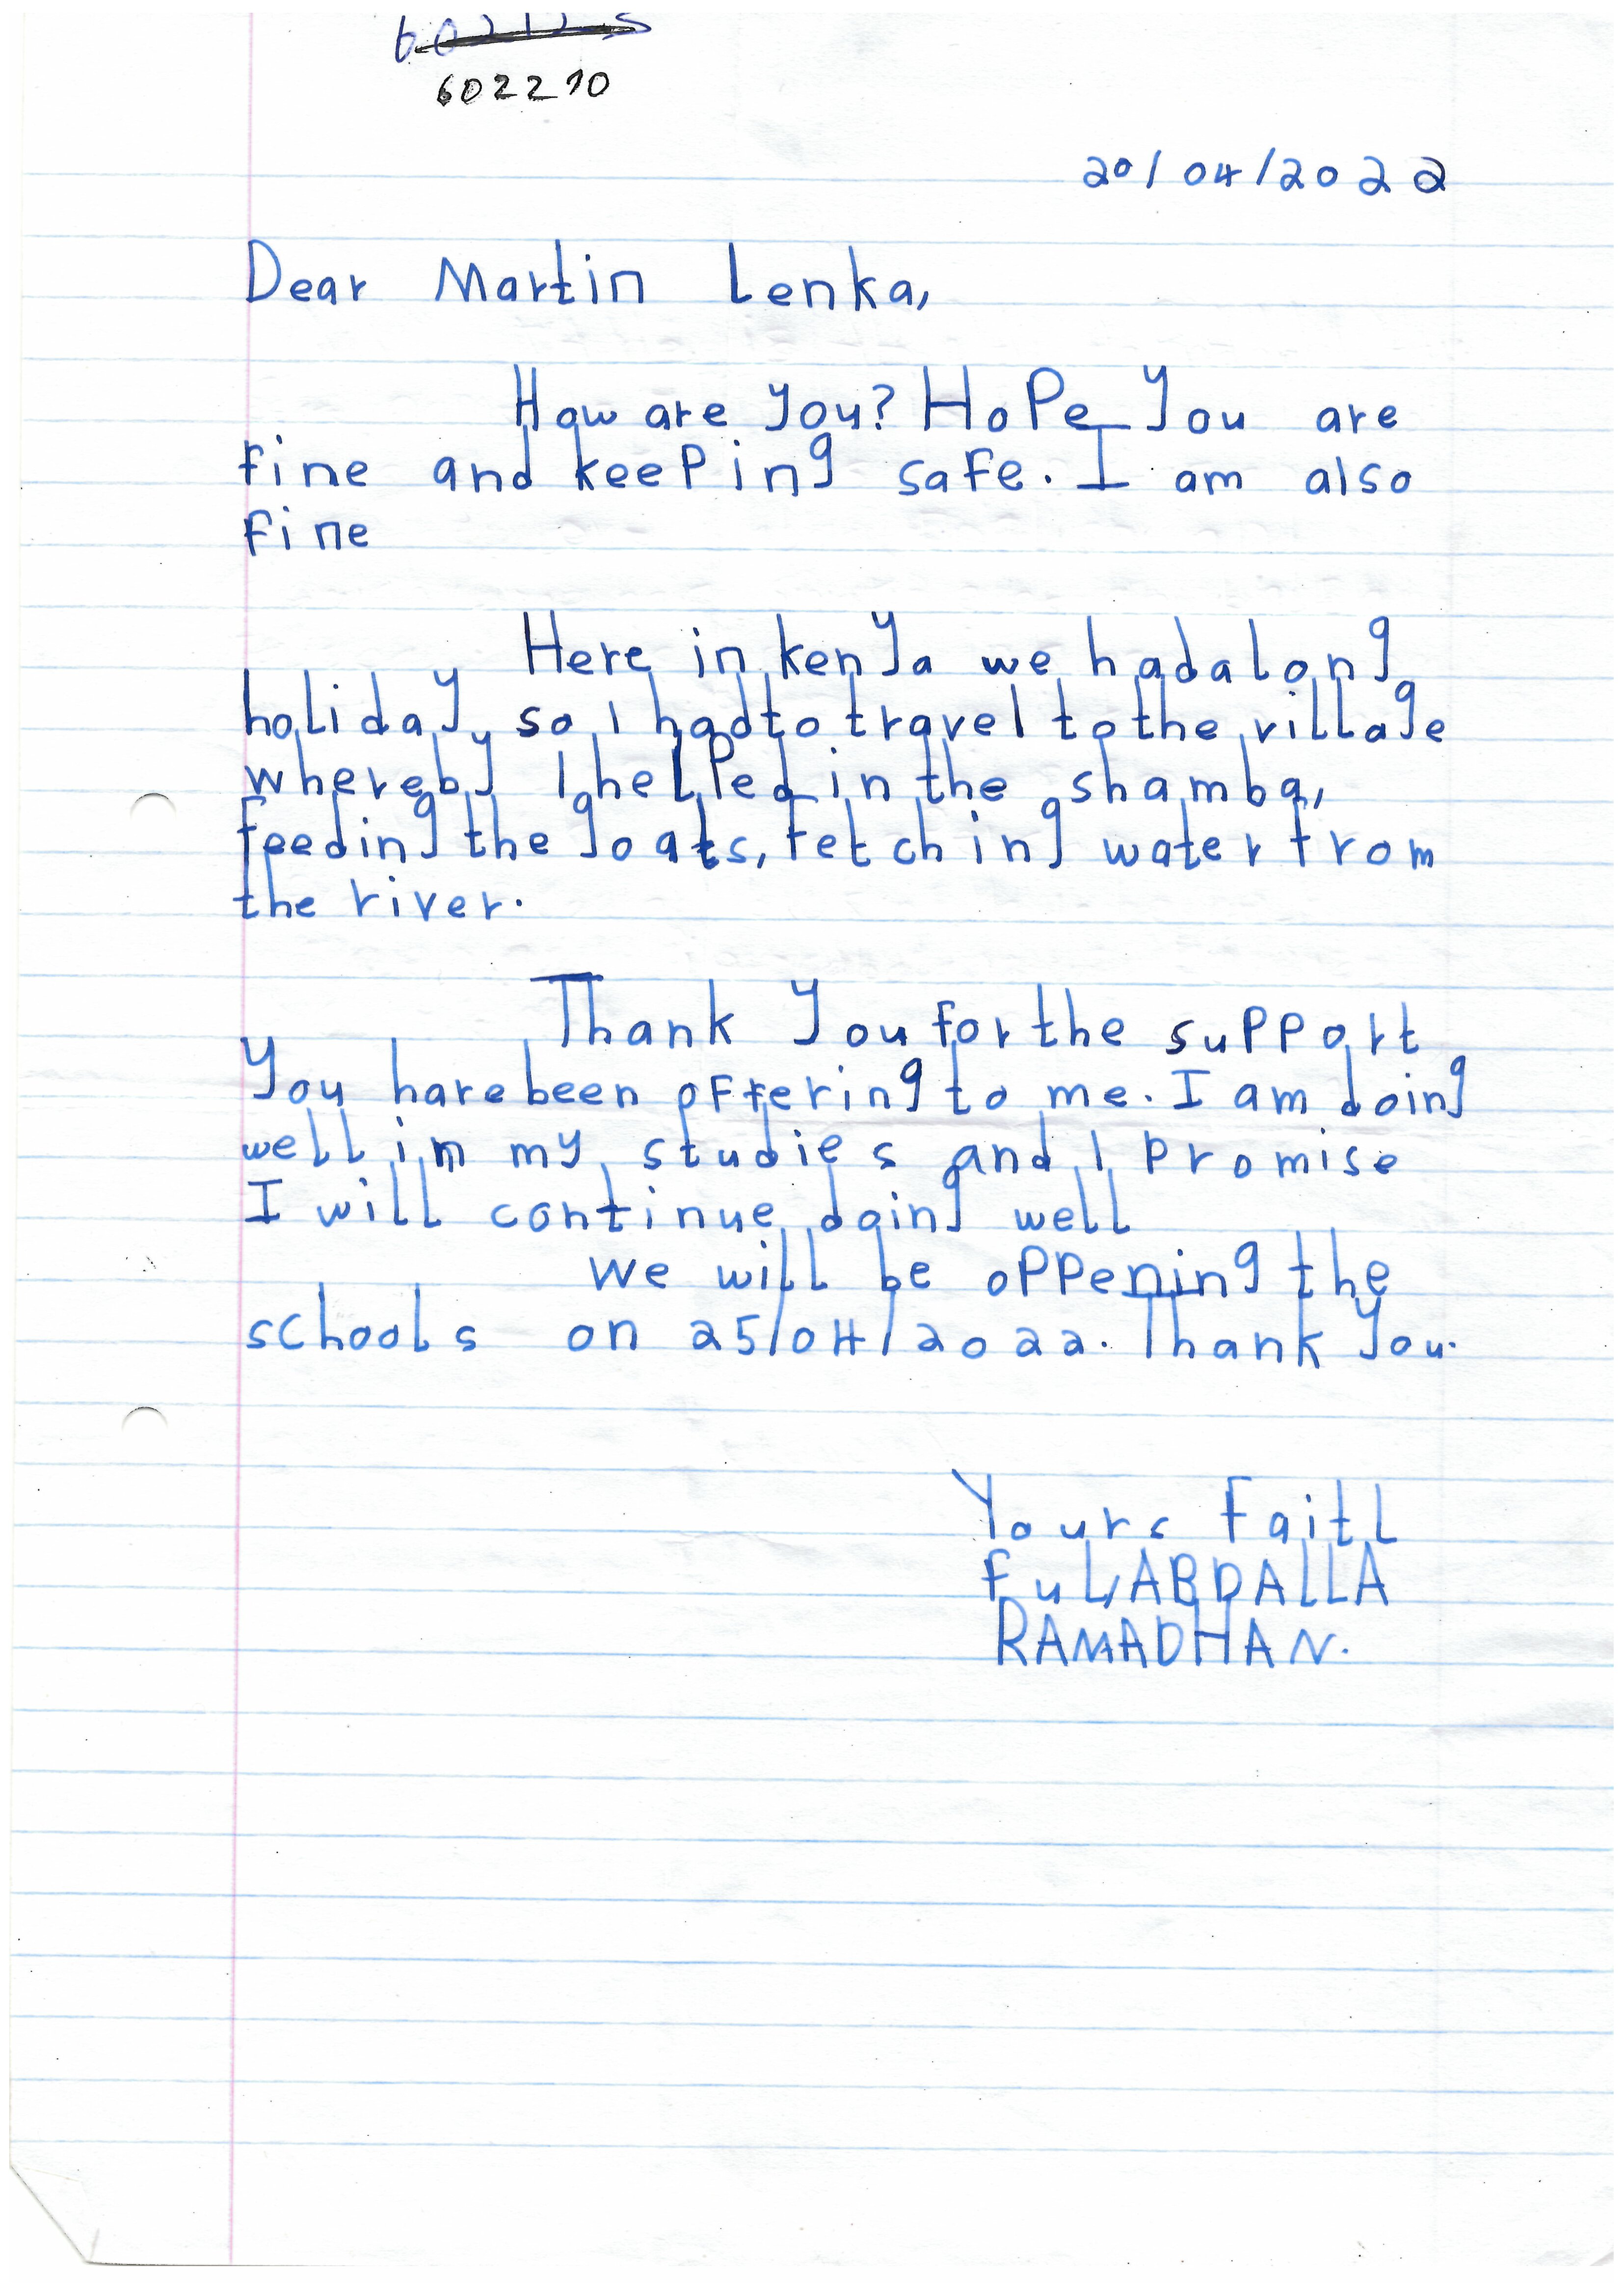 602210
20/04/2022
Dear Martin Lenka,
How are you? Hope you are
fine and keeping safe. I am also
fine
Here in kenya we had a long
holiday so I had to travel to the village
whereby I helped in the shamba,
feeding the goats, fetching water from
the river.
Thank you for the support
You have been offering to me. I am doing
well in my studies and I promise
I will continue doing well
We will be oppening the
schools on 25/04/2022. Thank you.
Yours Faith
ful, ABDALLA
RAMADHAN.